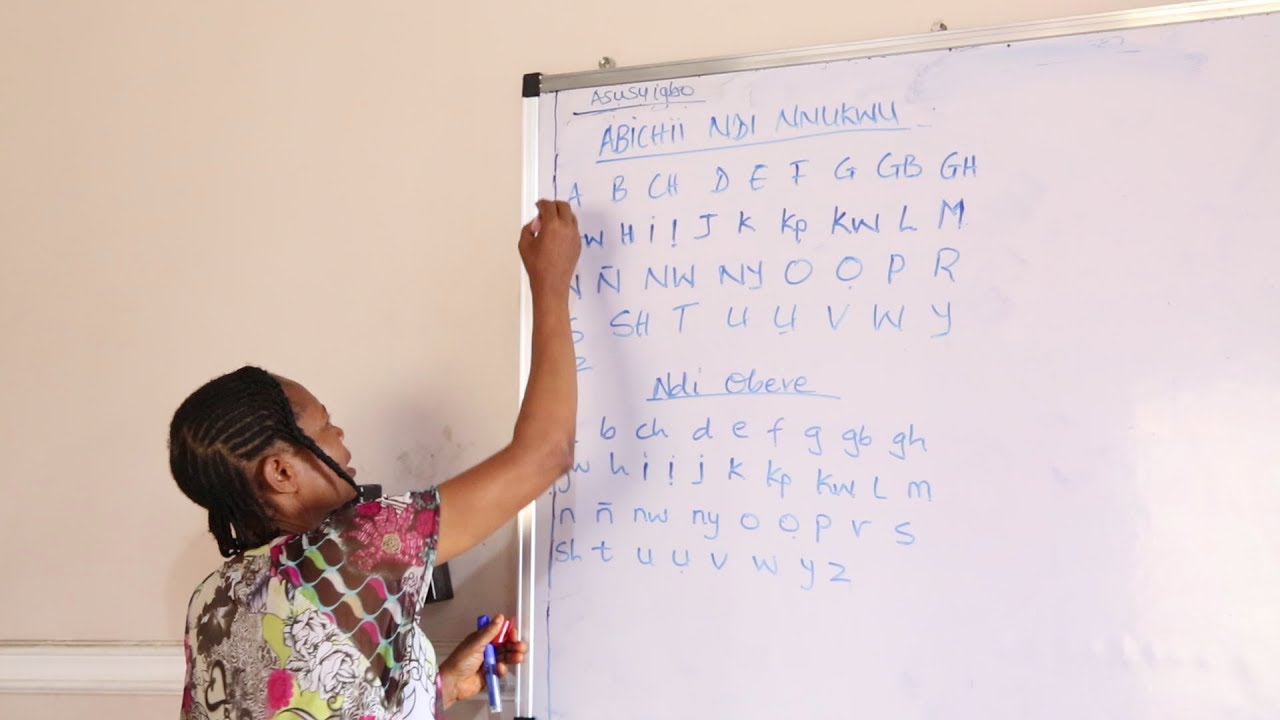 Asụsụ igbo
ABICHII NDI NNUKWU
A B CH D E F G GB GH
W H i ị J K Kp KW L M
N Ñ NW NY O Ọ P R
S SH T U Ụ V W Y
Z
Ndi Obere
b ch d e f g gb gh
gw h i ị j k kp kw L m
n ñ nw ny o ọ p r s
Sh t u ụ v w y z